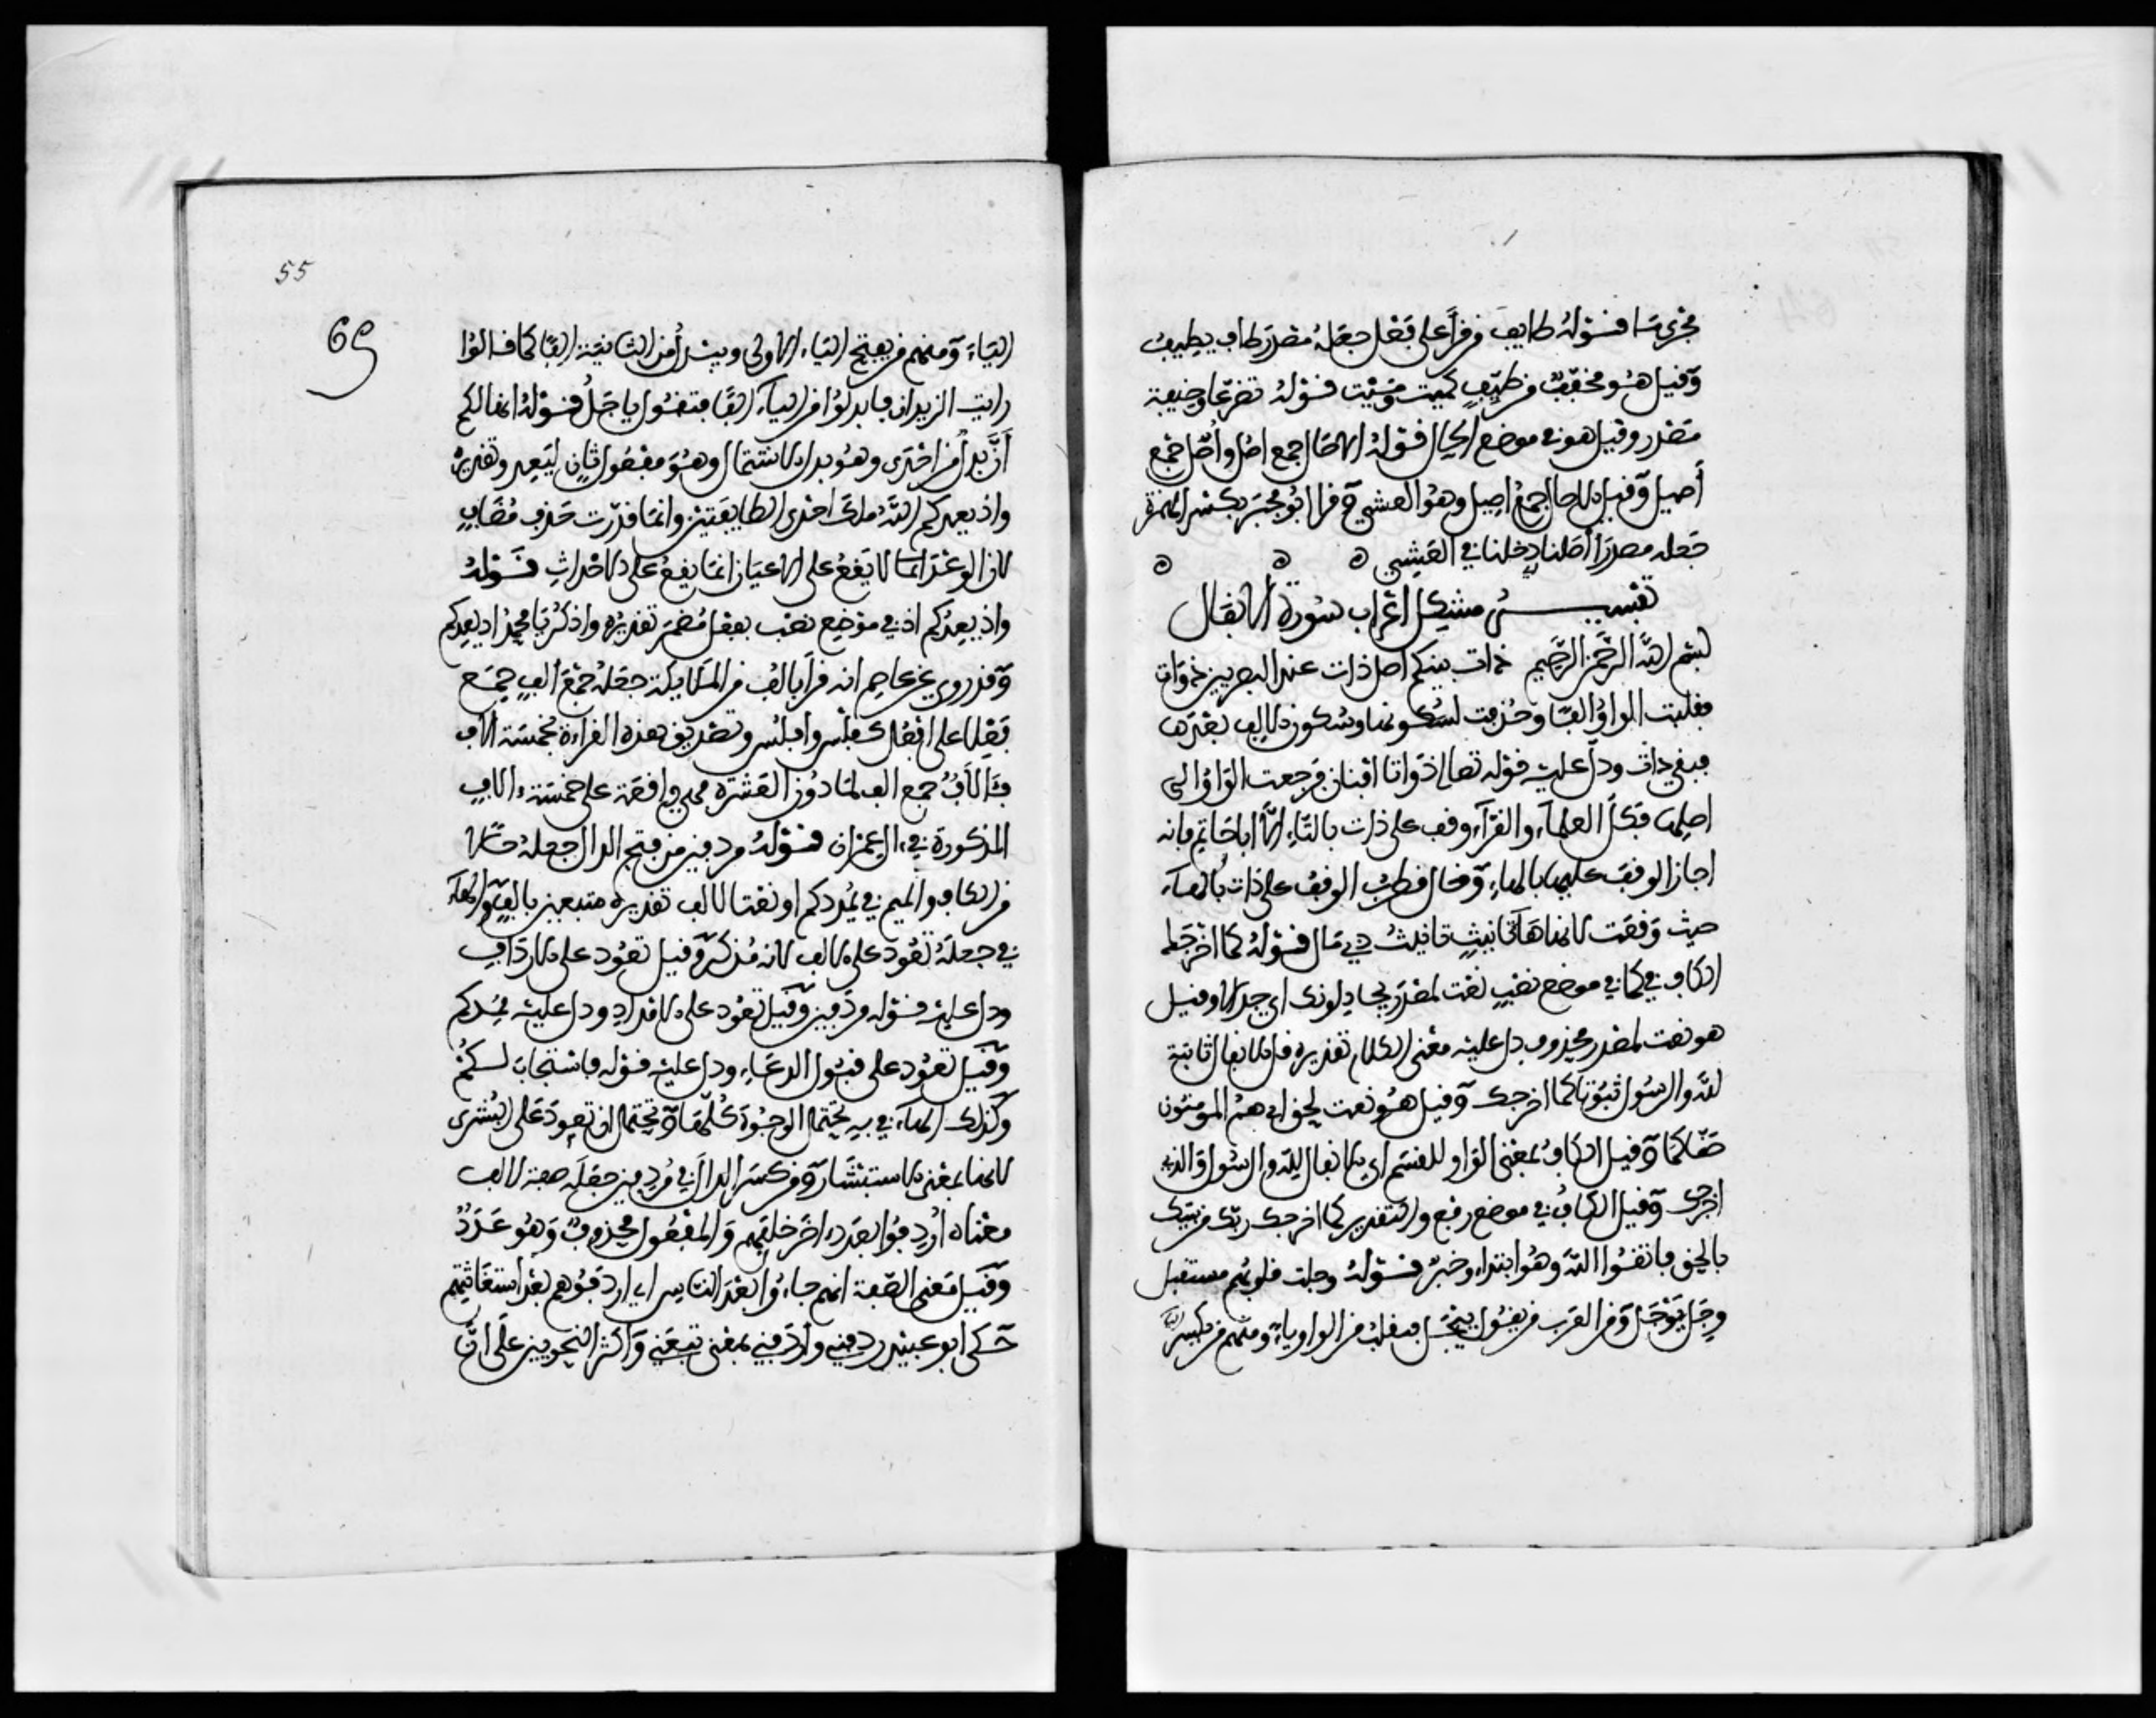 مجرى سا قوله طايف من قرأ على فعل جعله مصدر طاف يطيف
وقيل هو مخفف من طيف كميت وميت قوله تضرعا وخيفة
مصدر وقيل هو في موضع الحال قوله الاصال جمع اصل وأصل جمع
أصيل وقيل الاصال جمع اصيل وهو العشي وقرا ابو مجلز بكسر الهمزة
جعله مصدر أاصلنا دخلنا في العشي
تفسير مشكل اعراب سورة الانفال
بسم الله الرحمن الرحيم ذات بينكم اصل ذات عند البصريين ذوات
فقلبت الواو الفا وحذفت لسكونها وسكون الالف بعدها
فبقي ذات ودل عليه قوله تعالى ذواتا افنان فرجعت الواو الى
اصلها فكل العلماء والقراء وقف على ذات بالتاء الا ابا حاتم فانه
اجاز الوقف عليها بالهاء وقال قطرب الوقف على ذات بالهاء
حيث وقعت لانها هاء تانيث قوله كما اخرجك
الكاف في كما في موضع نصب نعت لمصدر يجادلونك اي جدالا وقيل
هو نعت لمصدر محذوف دل عليه معنى الكلام تقديره قل الانفال ثابتة
لله والرسول ثبوتا كما اخرجك وقيل هو نعت لحق اي هم المومنون
حقا كما وقيل الكاف بمعنى الواو للقسم اي الانفال لله والرسول والذي
اخرجك وقيل الكاف في موضع رفع والتقدير كما اخرجك ربك من بيتك
بالحق فاتقوا الله وهو ابتداء وخبر قوله وجلت قلوبهم مستقبل
وجل يوجل ومن العرب من يقول ييجل فيقلب من الواو ياء ومنهم من يكسر
55
69
الياء ومنهم من يفتح الياء الاولى ويبدل من الثانية الفا كما قالوا
رايت الزيدان فابدلوا من الياء الفا فتقول ياجل قوله انها لكم
أن بدل من احدى وهو بدل الاشتمال وهو مفعول ثان ليعد وتقديره
واذ يعدكم الله ملك احدى الطايفتين وانما قدرت حذف مضاف
لان الوعد انما لا يقع على الاعيان انما يقع على الاحداث قوله
واذ يعدكم اذ في موضع نصب بفعل مضمر تقديره واذكر يا محمد اذ يعدكم
وقد روي عن عاصم انه قرأ بالف من الملايكة جعله جمع الف جمع
فعلا على افعل كفلس وافلس وتصديق هذه القراءة بخمسة الاف
فئالاف جمع الف لما دون العشرة فهي واقعة على خمسة ءالاف
المذكورة في ءال عمران قوله مردفين من فتح الدال جعله حالا
من الكاف والميم في يمدكم او نعتا لالف تقديره متبعين بالف والهاء
في جعله تعود على الالف لانه مذكر وقيل تعود على الارداف
ودل عليه قوله مردفين وقيل تعود على الامداد ودل عليه يمدكم
وقيل تعود على قبول الدعاء ودل عليه قوله فاستجاب لكم
وكذلك الهاء في به يحتمل الوجوه كلها ويحتمل ان تعود على البشرى
لانها بمعنى الاستبشار ومن كسر الدال في مردفين جعله صفة لالف
معناه اردفوا بعدد اخر خلفهم والمفعول محذوف وهو عدد
وقيل معنى الصفة انهم جاءوا بعد الناس اي اردفوهم بعد استغاثتهم
حكى ابو عبيد ردفني واردفني بمعنى تبعني واكثر النحويين على ان